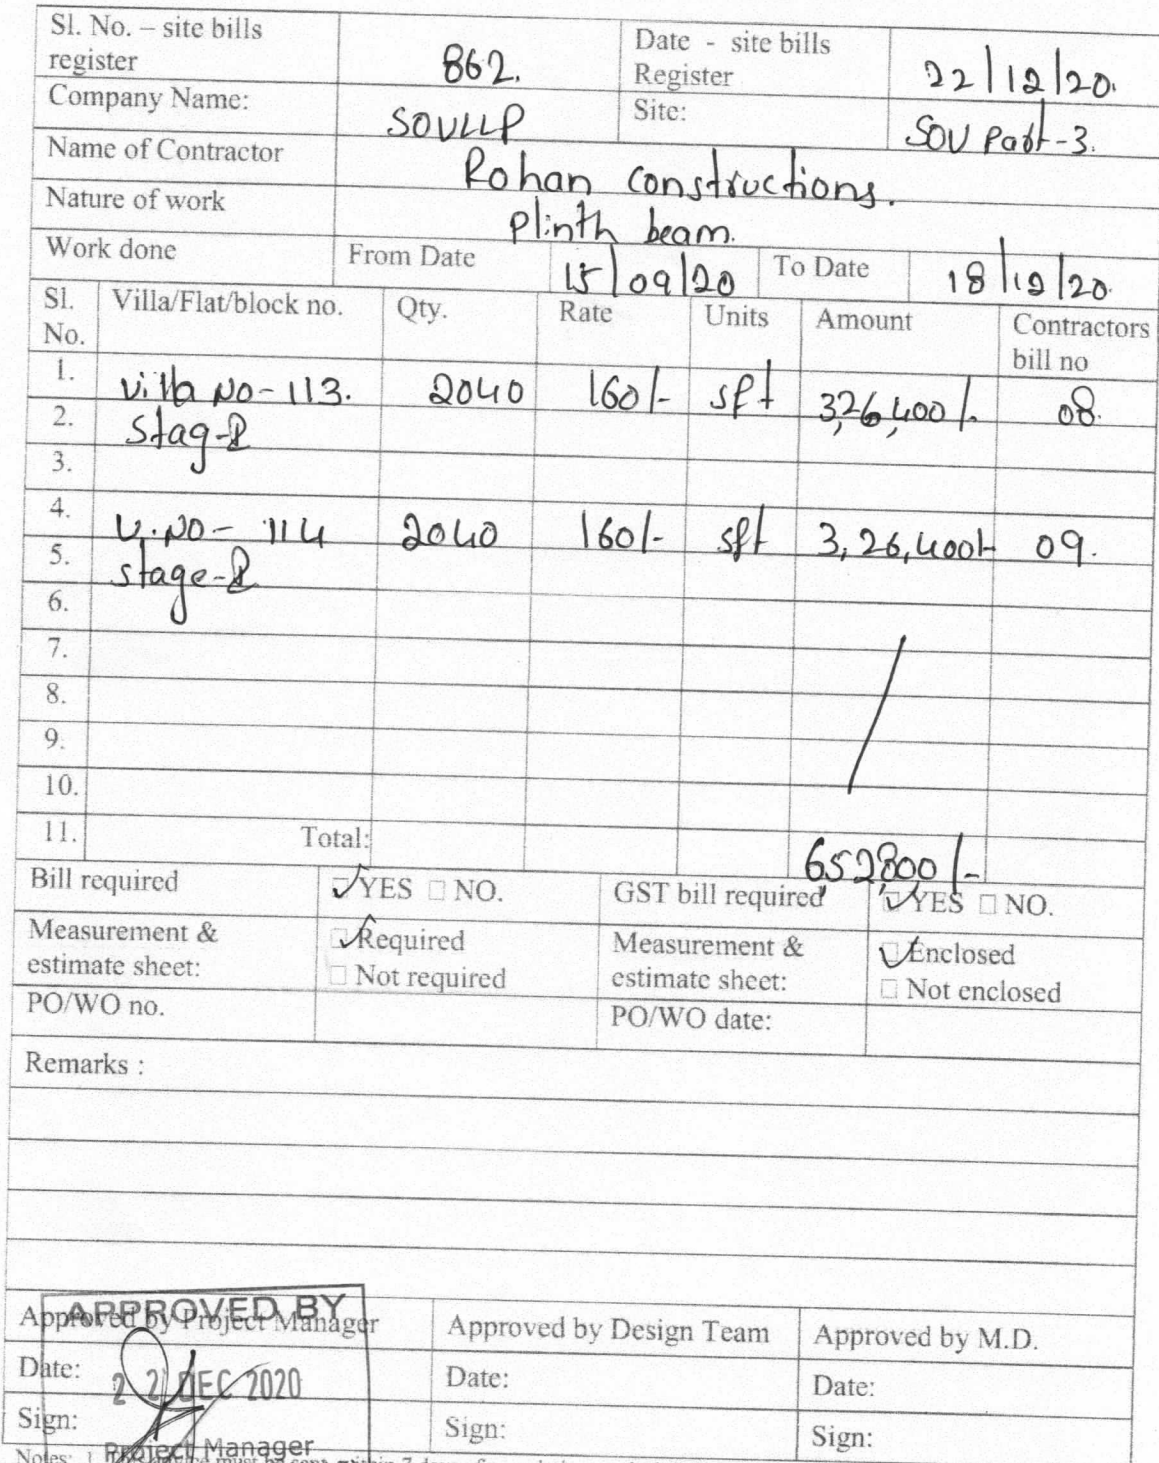 Sl. No. – site bills register 862. Date - site bills Register 22/12/20.
Company Name: SOVLLP Site: SOV Part-3.
Name of Contractor Rohan constructions.
Nature of work plinth beam.
Work done From Date 15/09/20 To Date 18/12/20.
Sl. No. Villa/Flat/block no. Qty. Rate Units Amount Contractors bill no
1. Villa No-113. 2040 160/- sft 3,26,400/- 08.
2. Stag-2
3.
4. V.NO- 114 2040 160/- sft 3,26,400/- 09.
5. stage-2
6.
7.
8.
9.
10.
11. Total: 652800/-
Bill required YES NO. GST bill required YES NO.
Measurement & estimate sheet: Required Not required Measurement & estimate sheet: Enclosed Not enclosed
PO/WO no. PO/WO date:
Remarks :
APPROVED BY
Approved by Project Manager Approved by Design Team Approved by M.D.
Date: 22 DEC 2020 Date: Date:
Sign: Sign: Sign:
Project Manager
Notes: 1.